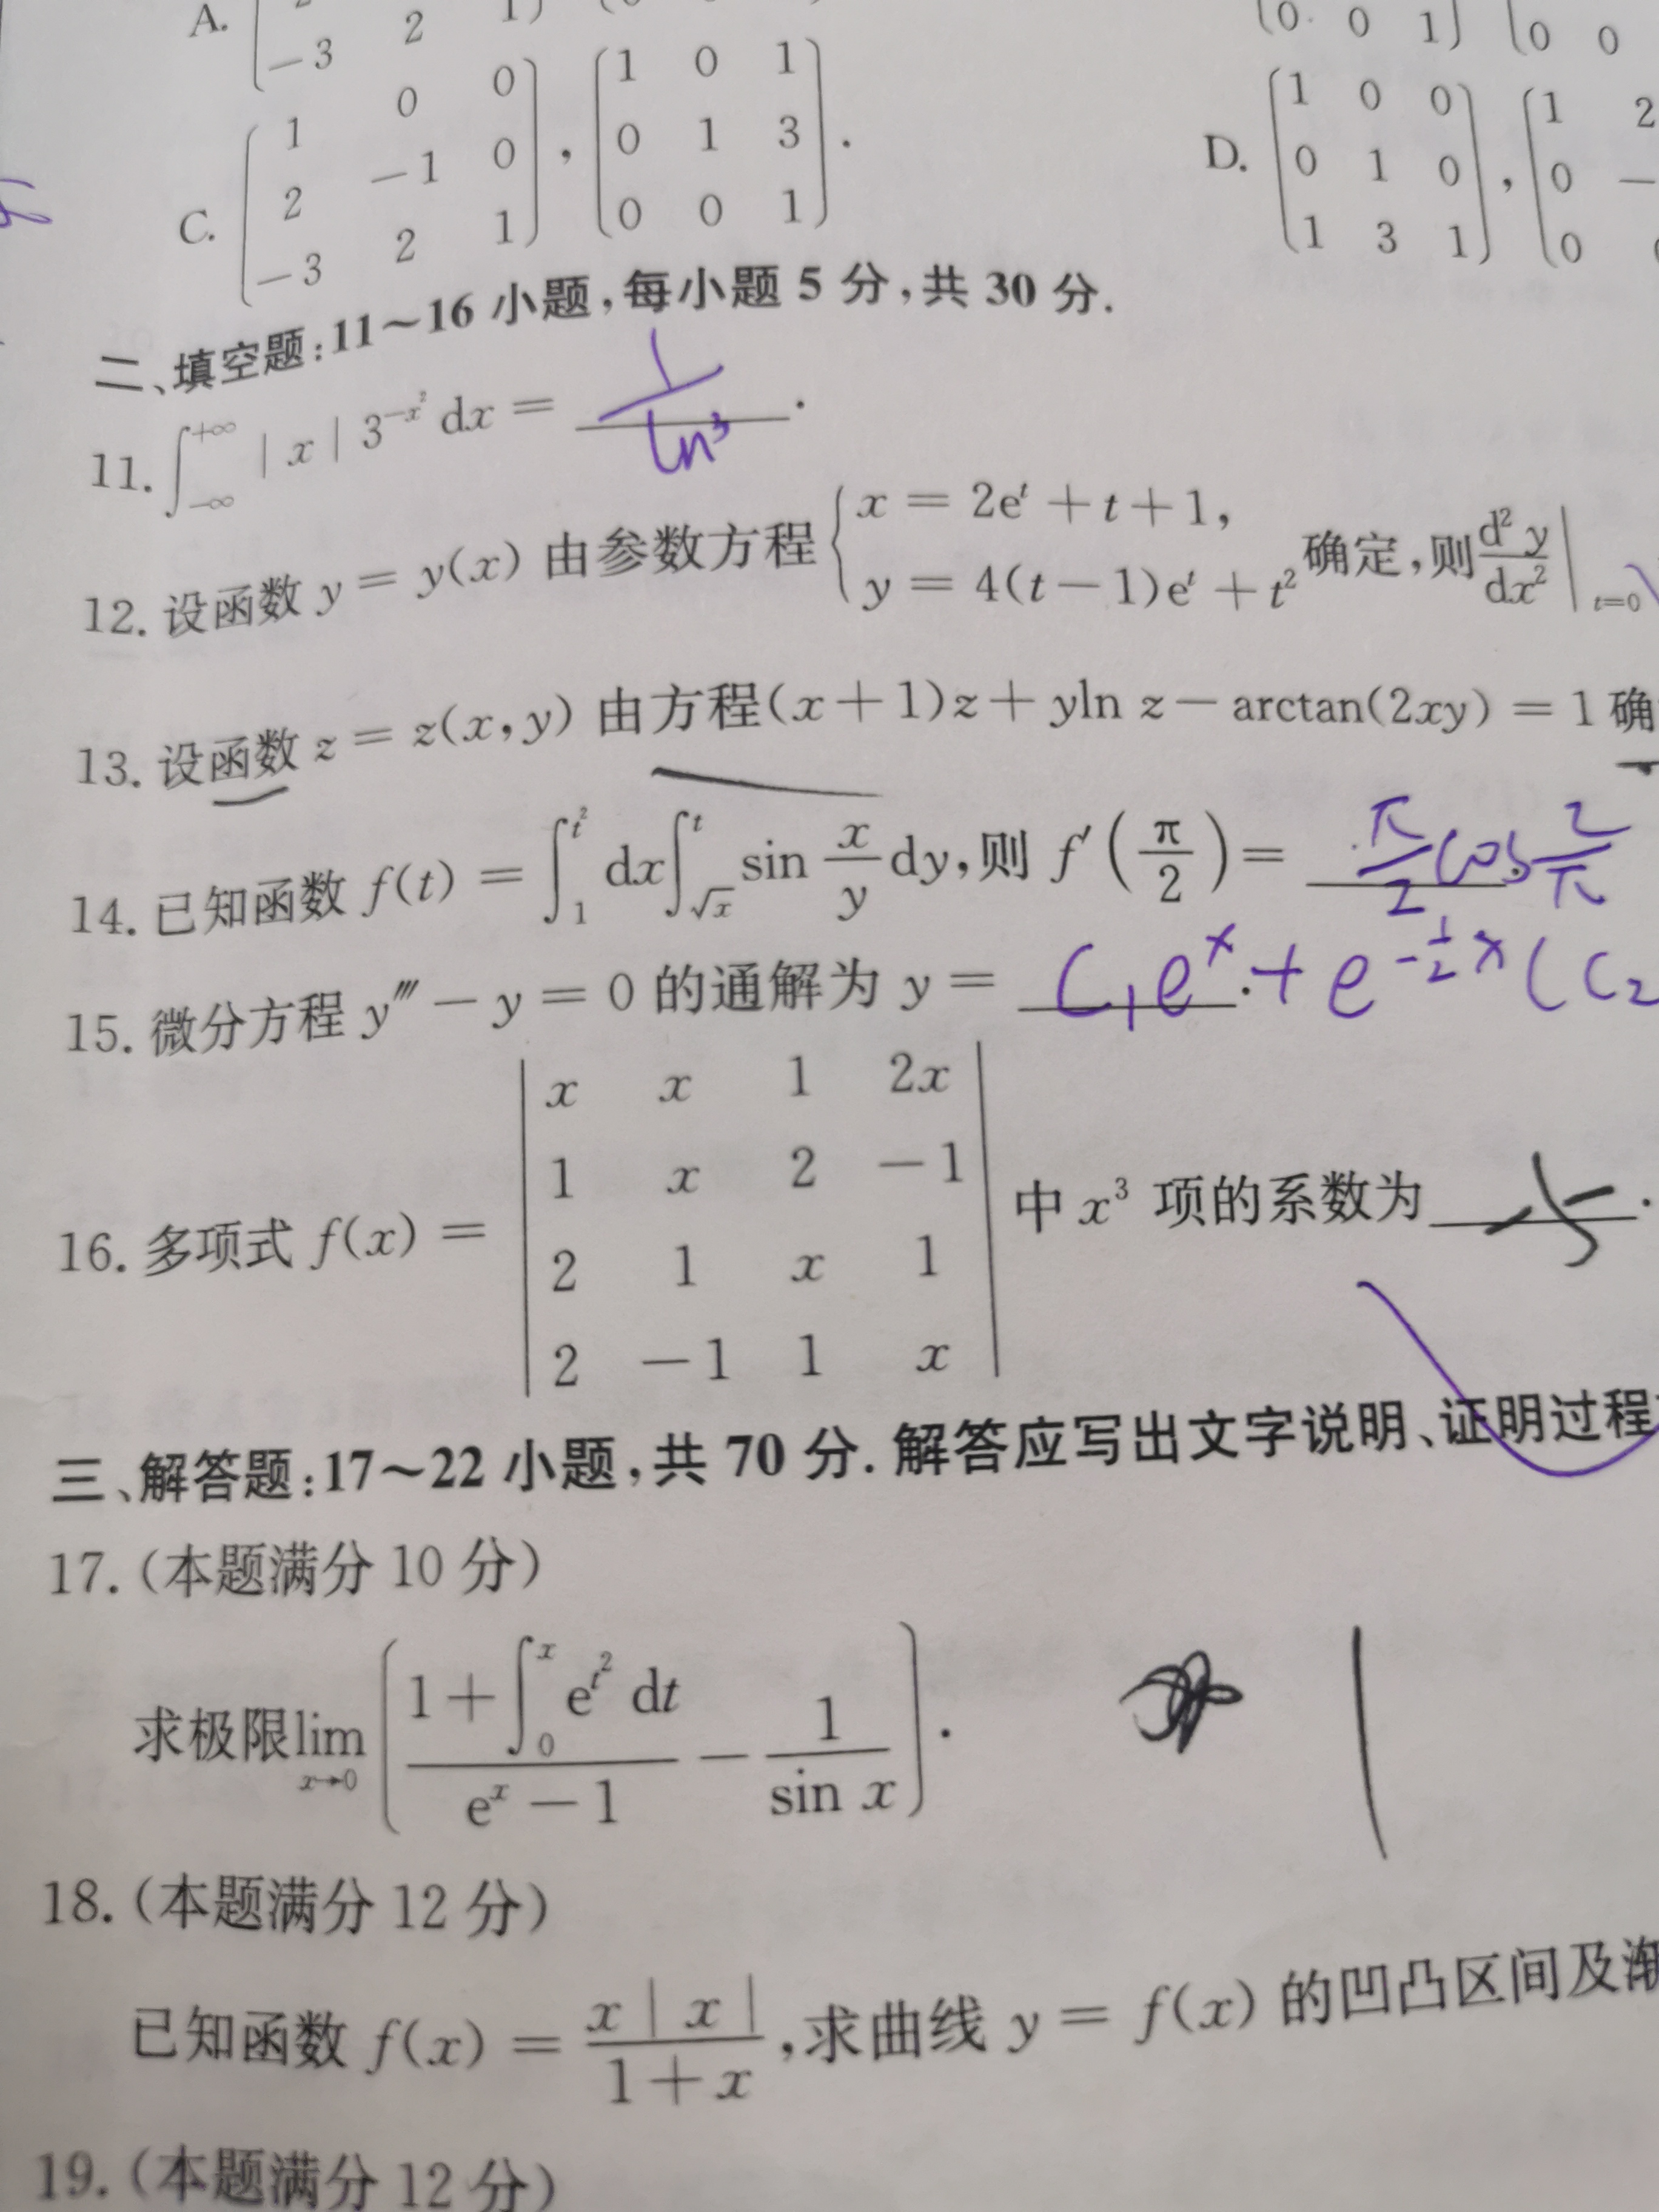 A.
-3 2 1
(0 0 1) (0 0
C. (1 0 0; 2 -1 0; -3 2 1), (1 0 1; 0 1 3; 0 0 1).
D. (1 0 0; 0 1 0; 1 3 1), (1 2; 0 -; 0
二、填空题:11～16 小题,每小题 5 分,共 30 分.
11. ∫_{-∞}^{+∞} | x | 3^{-x²} dx = 1/ln3 .
12. 设函数 y = y(x) 由参数方程 { x = 2e^t + t + 1, y = 4(t-1)e^t + t² 确定,则 d²y/dx² |_{t=0}
13. 设函数 z = z(x,y) 由方程(x+1)z + yln z - arctan(2xy) = 1 确
14. 已知函数 f(t) = ∫_1^{t²} dx ∫_{√x}^{t} sin x/y dy,则 f′(π/2) = π/2 cos 2/π .
15. 微分方程 y‴ - y = 0 的通解为 y = C₁e^x . + e^{-1/2 x} (C₂
16. 多项式 f(x) = | x x 1 2x; 1 x 2 -1; 2 1 x 1; 2 -1 1 x | 中 x³ 项的系数为 -5 .
三、解答题:17～22 小题,共 70 分. 解答应写出文字说明、证明过程
17. (本题满分 10 分)
求极限 lim_{x→0} ( (1 + ∫_0^x e^{t²} dt)/(e^x - 1) - 1/sin x ) .
18. (本题满分 12 分)
已知函数 f(x) = x | x |/(1 + x) ,求曲线 y = f(x) 的凹凸区间及渐
19. (本题满分 12 分)